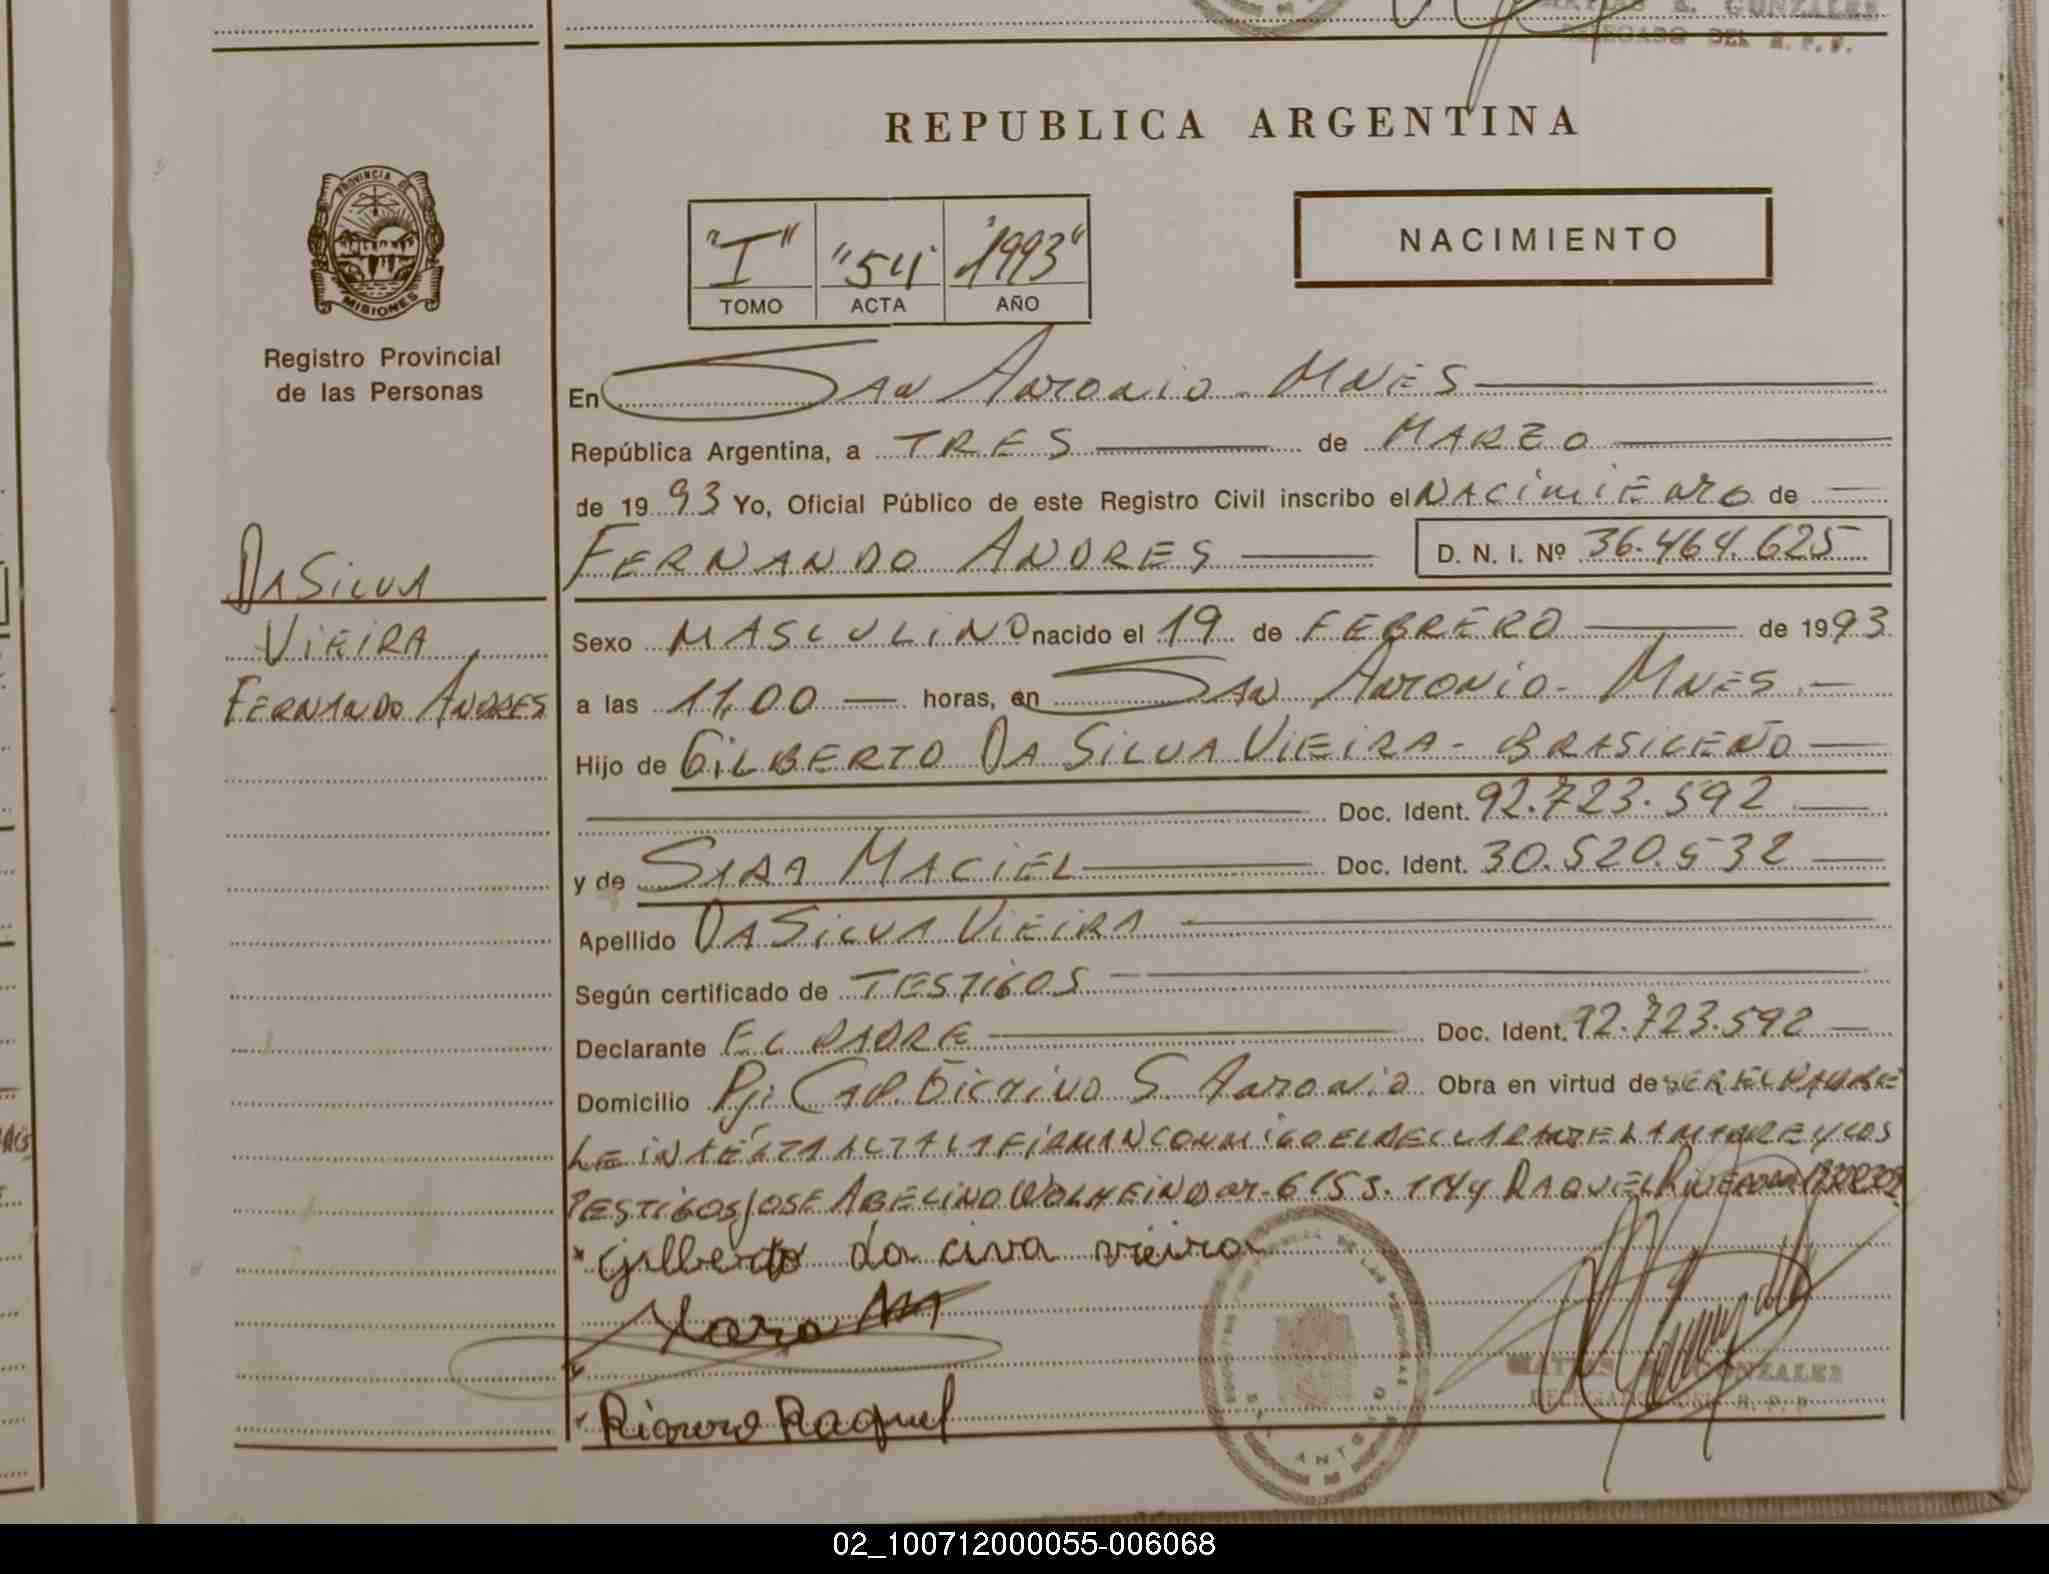 MATIAS E. GONZALEZ
DELEGADO DEL R. P. P.
REPUBLICA ARGENTINA
PROVINCIA DE
MISIONES
Registro Provincial
de las Personas
"I" "54" "1993"
TOMO ACTA AÑO
NACIMIENTO
En SAN ANTONIO - MNES
República Argentina, a TRES de MARZO
de 1993 Yo, Oficial Público de este Registro Civil inscribo el NACIMIENTO de
FERNANDO ANDRES D. N. I. Nº 36.464.625
DA SILVA
VIEIRA
FERNANDO ANDRES
Sexo MASCULINO nacido el 19 de FEBRERO de 1993
a las 11,00 horas, en SAN ANTONIO - MNES
Hijo de GILBERTO DA SILVA VIEIRA - BRASILEÑO
Doc. Ident. 92.723.592
y de MACIEL Doc. Ident. 30.520.532
Apellido DA SILVA VIEIRA
Según certificado de TESTIGOS
Declarante EL PADRE Doc. Ident. 92.723.592
Domicilio S. ANTONIO Obra en virtud de SER EL PADRE
LEIDA ESTA ACTA LA FIRMAN CONMIGO EL DECLARANTE LA MADRE Y LOS
TESTIGOS JOSE ABELINO Y RAQUEL
Gilberto da civa vieira
Raquel
MATIAS E. GONZALEZ
DELEGADO DEL R. P. P.
SAN ANTONIO
02_100712000055-006068